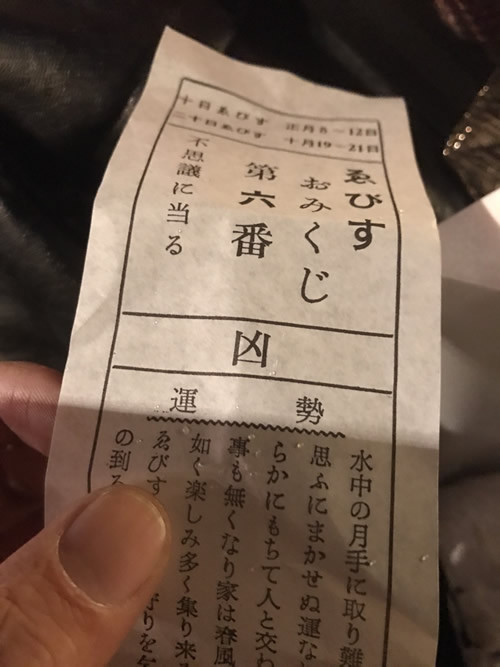 十日ゑびす 正月8～12日
二十日ゑびす 十月19～21日
ゑびす
おみくじ
第六番
不思議に当る
凶
運勢
水中の月手に取り難
思ふにまかせぬ運な
らかにもちて人と交わ
事も無くなり家は春風
如く楽しみ多く集り来
ゑびす
の到る